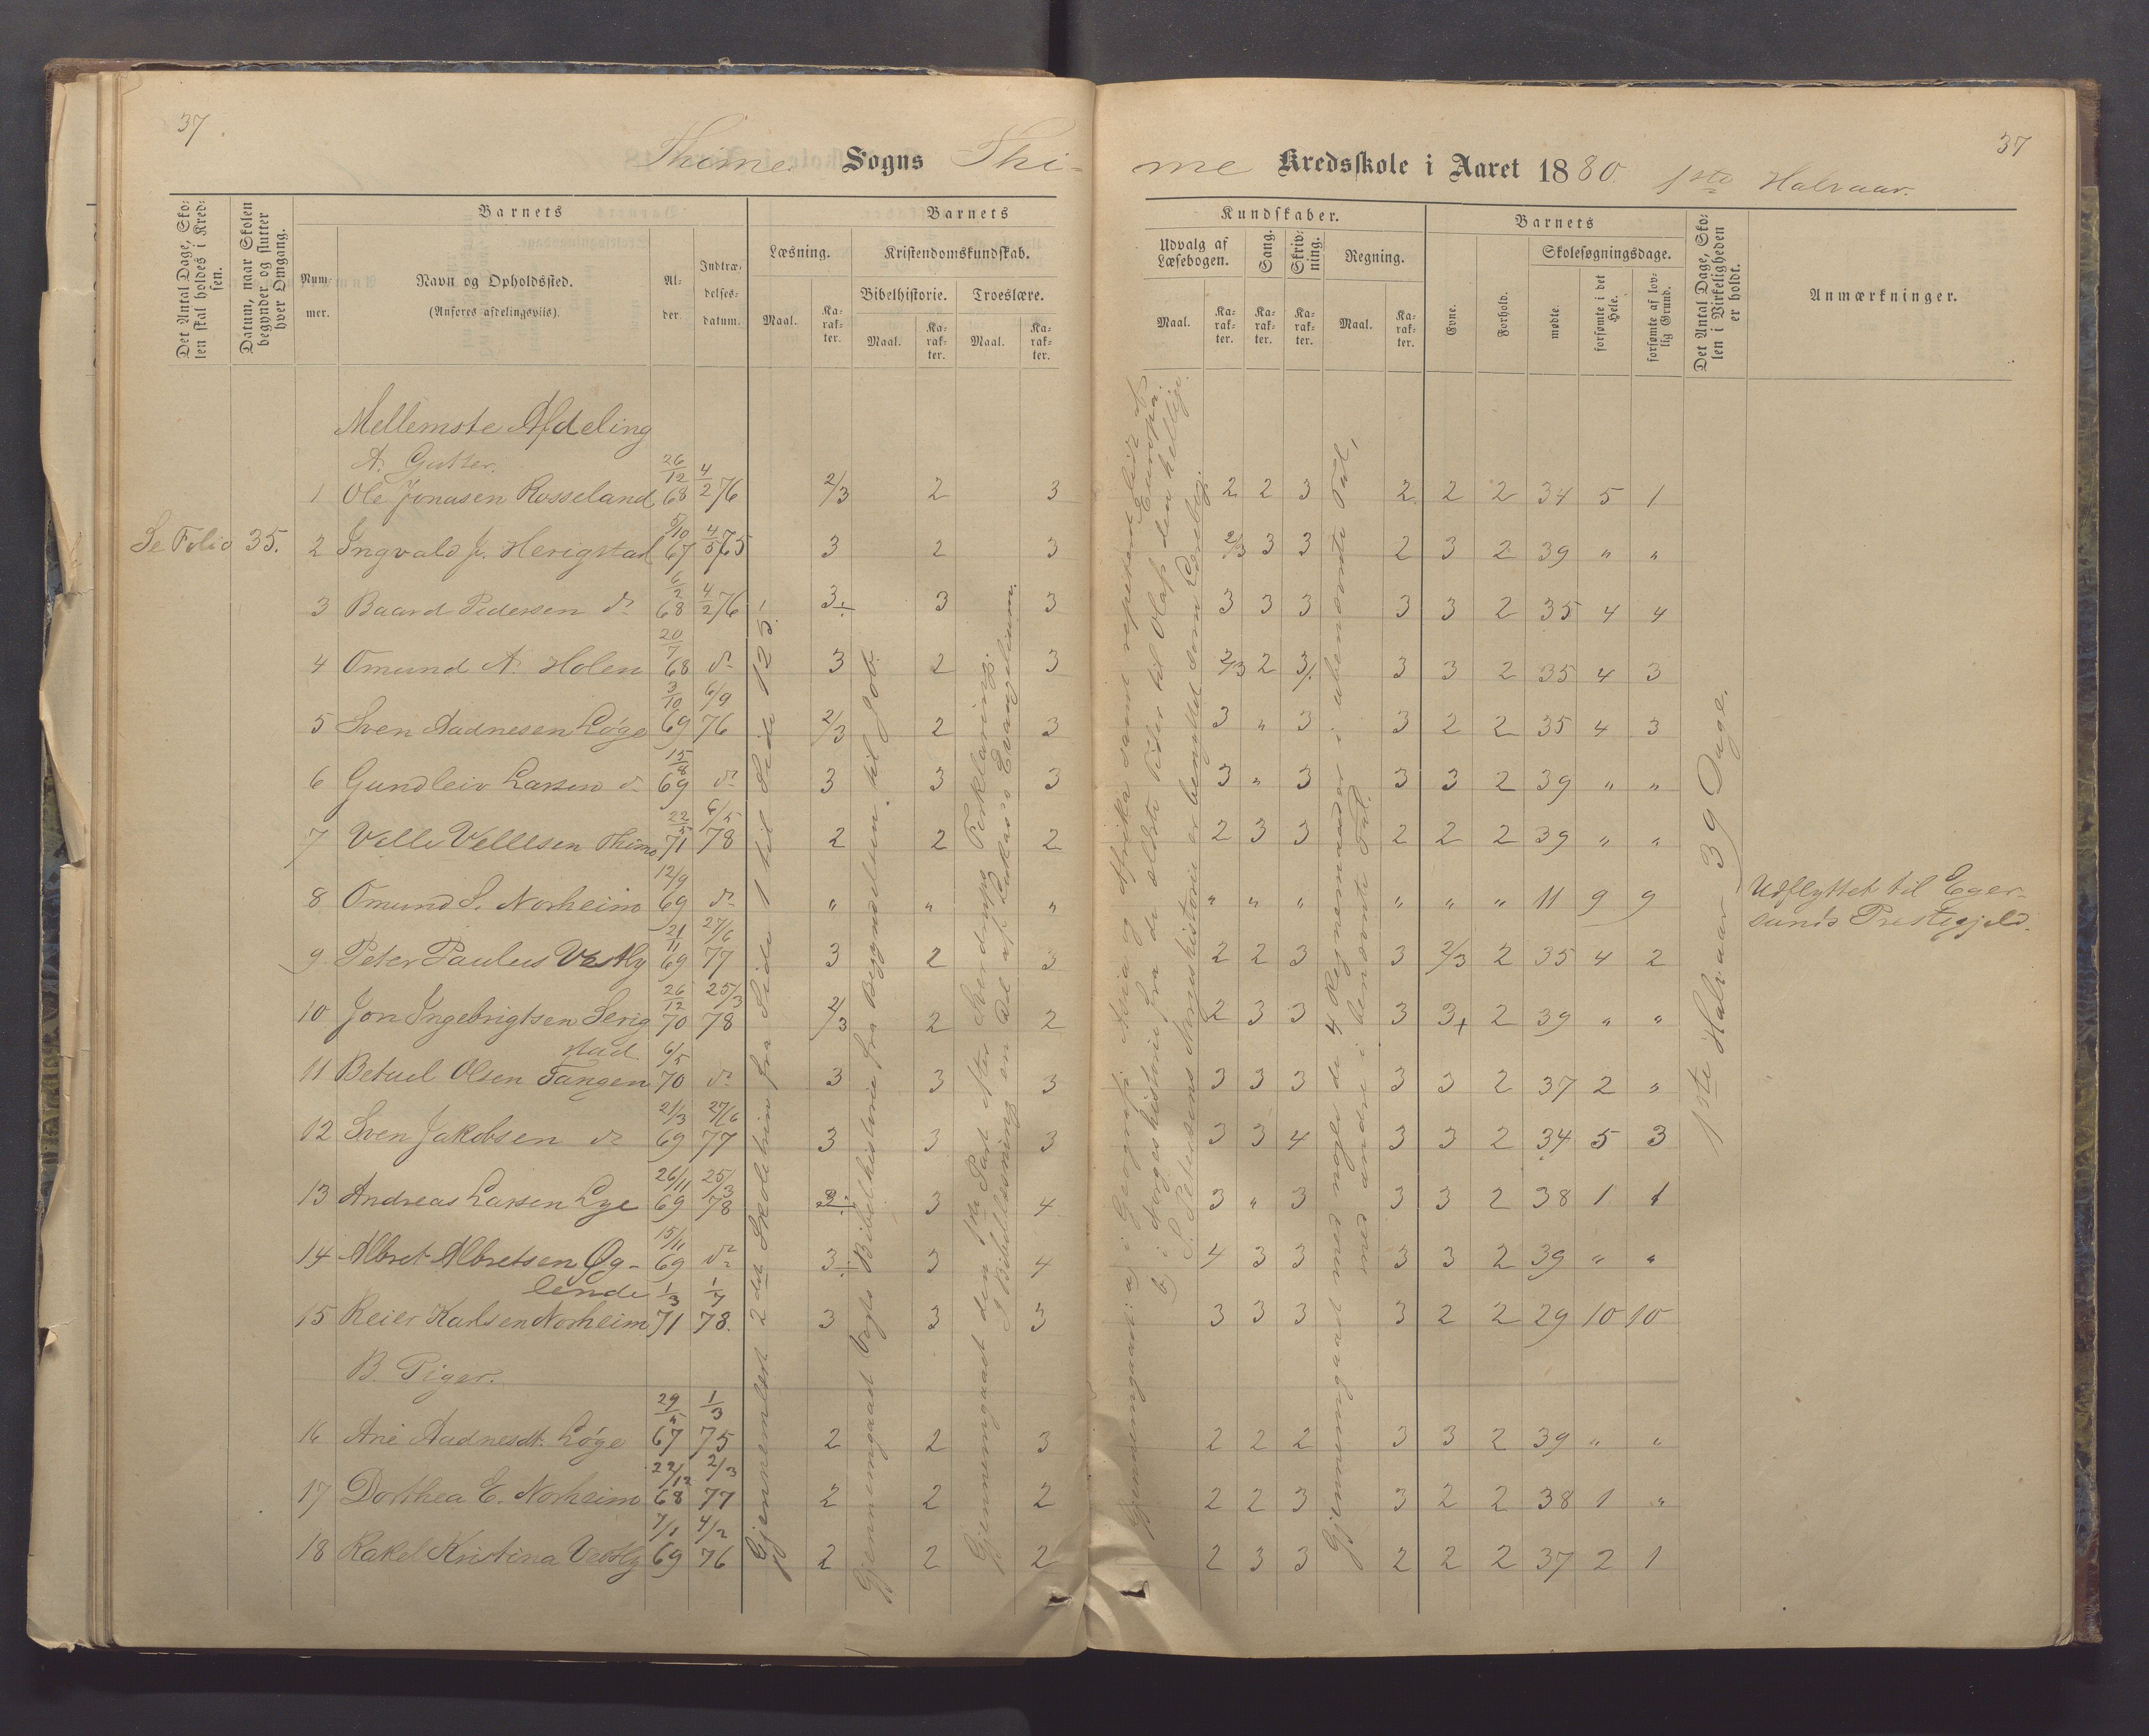 37
37
Thime Sogns Thi-
me Kredsskole i Aaret 1880 1ste Halvaar.
Det Antal Dage, Sko-
len skal holdes i Kred-
sen.
Datum, naar Skolen
begynder og slutter
hver Omgang.
Barnets
Num-
mer.
Navn og Opholdssted.
(Anføres afdelingsviis).
Al-
der.
Indtræ-
delses-
datum.
Barnets
Læsning.
Kristendomskundskab.
Bibelhistorie. Troeslære.
Maal. Ka-
rak-
ter. Maal. Ka-
rak-
ter. Maal. Ka-
rak-
ter.
Kundskaber.
Udvalg af
Læsebogen.
Sang.
Skriv-
ning.
Regning.
Maal. Ka-
rak-
ter. Ka-
rak-
ter. Ka-
rak-
ter. Maal. Ka-
rak-
ter.
Barnets
Evne.
Forhold.
Skolesøgningsdage.
mødte.
forsømte i det
Hele.
forsømte af lov-
lig Grund.
Det Antal Dage, Sko-
len i Virkeligheden
er holdt.
Anmærkninger.
Mellemste Afdeling
A. Gutter.
1 Ole Jonasen Rosseland 26/12 68 4/2 76 2/3 2 3 2 2 3 2 2 2 34 5 1
Se Folio 35. 2 Ingvald J. Herigstad 5/10 67 4/5 75 3 2 3 2/3 3 3 2 3 2 39 " "
3 Baard Pedersen do 6/2 68 4/2 76 3÷ 3 3 3 3 3 3 3 2 35 4 4
4 Omund A. Holen 20/7 68 do 3 2 3 2/3 2 3/. 3 3 2 35 4 3
5 Sven Aadnesen Løge 3/10 69 6/9 76 2/3 2 3 3 " 3 3 2 2 35 4 3
6 Gundleiv Larsen do 15/8 69 do 3 3 3 3 " 3 3 3 2 39 " "
7 Velle Vellesen Thime 22/5 71 6/5 78 2 2 2 2 3 3 2 2 2 39 " "
8 Omund S. Norheim 12/9 69 do " " " " " " " " " 11 9 9 Udflyttet til Eger-
sunds Prestegjeld.
9 Peter Paulus Vestly 21/11 69 27/6 77 3 2 3 2 2 3 3 2/3 2 35 4 2
10 Jon Ingebrigtsen Serig-
stad 26/12 70 25/3 78 2/3 2 2 2 3 3 3 3+ 2 39 " "
11 Betuel Olsen Tangen 6/5 70 do 3 3 3 3 3 3 3 3 2 37 2 "
12 Sven Jakobsen do 21/3 69 27/6 77 3 3 3 3 3 4 3 3 2 34 5 3
13 Andreas Larsen Lye 26/11 69 25/3 78 3÷ 3 4 3 " 3 3 3 2 38 1 1
14 Albret Albretsen Øg-
lende 15/11 69 do 3÷ 3 4 4 3 3 3 3 2 39 " "
15 Reier Karlsen Norheim 1/3 71 1/7 78. 3 3 3 3 3 3 3 2 2 29 10 10
B. Piger.
16 Ane Aadnesdt. Løge 29/5 67 1/3 75 2 2 3 2 2 2 3 3 2 39 " "
17 Dorthea E. Norheim 22/12 68 2/3 77 2 2 2 2 2 3 3 2 2 38 1 "
18 Rakel Kristina Vestly 7/1 69 4/2 76 2 2 2 2 3 3 2 2 2 37 2 1
Gjennemlæst 2det Skoletrin fra Side 1 til Side 125.
Gjennemgaaet Vogts Bibelhistorie fra Begyndelsen til Job.
Gjennemgaaet den 1ste Part efter Sverdrups Forklaring.
I Bibellæsning en Del af Lukas's Evangelium.
Gjennemgaaet: a) i Geografi: Asia og Afrika samt repeteret Europa.
b) i Norges historie fra de ældste Tider til Olaf den hellige.
S. Petersens Norgeshistorie er benyttet som Lærebog.
Gjennemgaaet med nogle de 4 Regnemaader i ubenævnte Tal,
med andre i benævnte Tal.
1ste Halvaar 39 Dage.